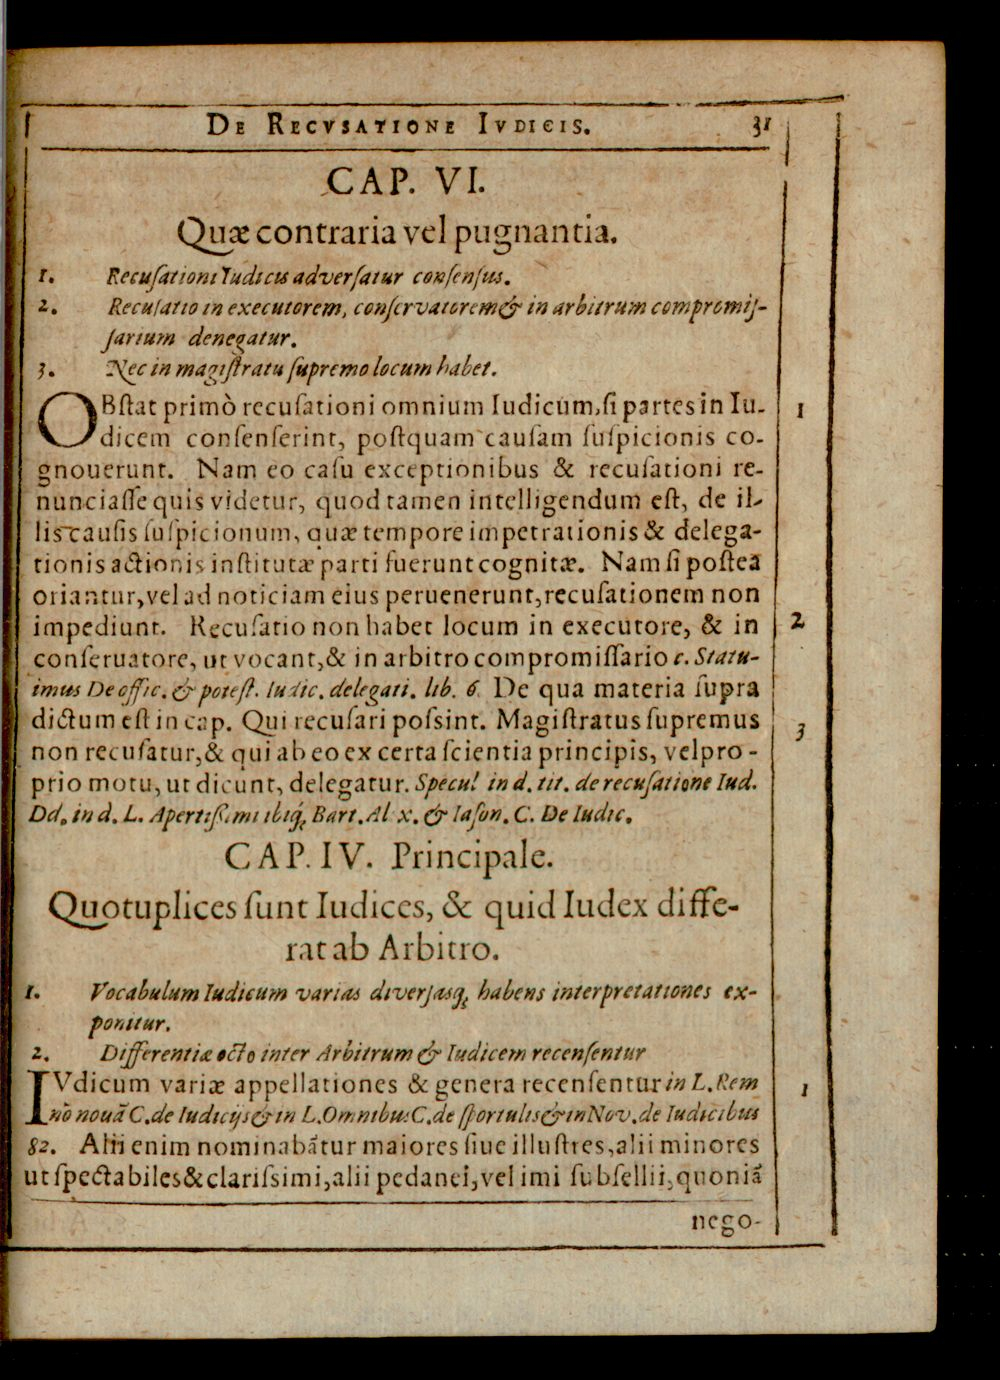 DE RECVSATIONE IVDICIS. 31
CAP. VI.
Quæ contraria vel pugnantia.
1. Recuſationi Iudicis adverſatur conſenſus.
2. Recuſatio in executorem, conſervatorem & in arbitrum compromiſ-
ſarium denegatur.
3. Nec in magiſtratu ſupremo locum habet.
OBſtat primò recuſationi omnium Iudicum, ſi partes in Iu- 1
dicem conſenſerint, poſtquam cauſam ſuſpicionis co-
gnouerunt. Nam eo caſu exceptionibus & recuſationi re-
nunciaſſe quis videtur, quod tamen intelligendum eſt, de il-
lis cauſis ſuſpicionum, quæ tempore impetrationis & delega-
tionis actionis inſtitutæ parti fuerunt cognitæ. Nam ſi poſtea
oriantur, vel ad noticiam eius peruenerunt, recuſationem non
impediunt. Recuſatio non habet locum in executore, & in 2
conſeruatore, ut vocant, & in arbitro compromiſſario c. Statu-
imus De offic. & poteſt. Iudic. delegati. lib. 6. De qua materia ſupra
dictum eſt in cap. Qui recuſari poſsint. Magiſtratus ſupremus
non recuſatur, & qui ab eo ex certa ſcientia principis, vel pro- 3
prio motu, ut dicunt, delegatur. Specul in d. tit. de recuſatione Iud.
Dd. in d. L. Apertiſſimi ibiq́; Bart. Al x. & Iaſon. C. De Iudic.
CAP. IV. Principale.
Quotuplices ſunt Iudices, & quid Iudex diffe-
rat ab Arbitro.
1. Vocabulum Iudicum varias diverſasq; habens interpretationes ex-
ponitur.
2. Differentiæ octo inter Arbitrum & Iudicem recenſentur
IVdicum variæ appellationes & genera recenſentur in L. Rem 1
nō nouā C. de Iudicijs & in L. Omnibus C. de ſportulis & in Nov. de Iudicibus
82. Alii enim nominabātur maiores ſiue illuſtres, alii minores
ut ſpectabiles & clariſsimi, alii pedanei, vel imi ſubſellii, quoniā
nego-